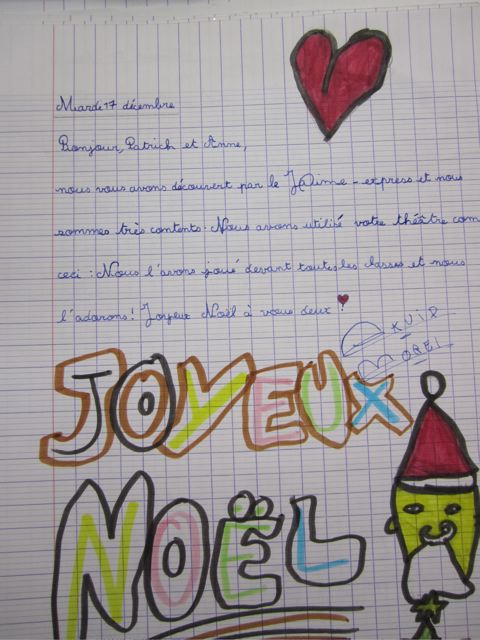 Mardi 17 décembre
Bonjour, Patrick et Anne,
nous vous avons découvert par le J'aime-express et nous
sommes très contents. Nous avons utilisé votre théâtre com
ceci : Nous l'avons joué devant toutes les classes et nous
l'adorons! Joyeux Noël à vous deux
JOYEUX
NOËL